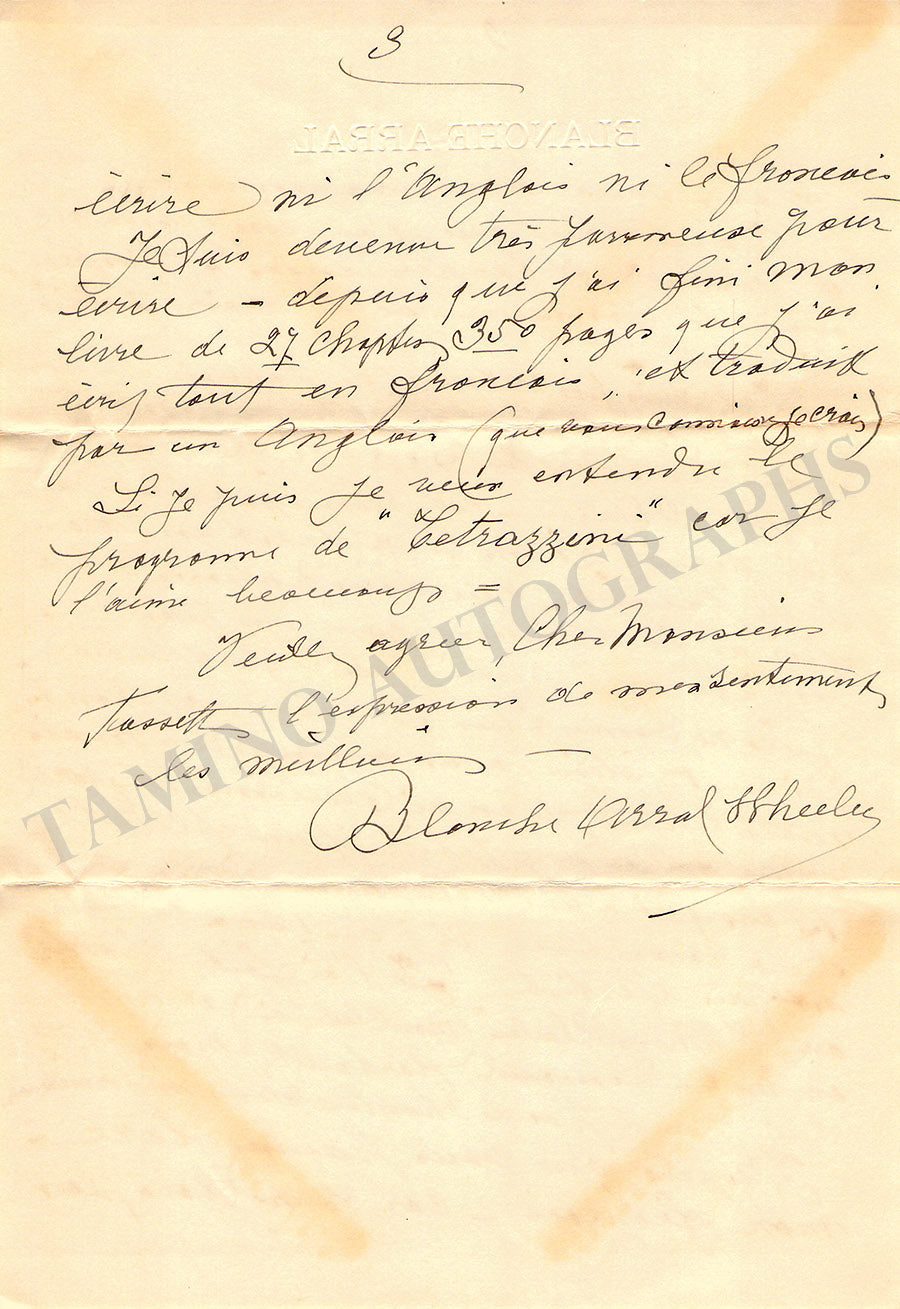 3
BLANCHE ARRAL
écrire ni l'Anglais ni le francais
Je suis devenue très paresseuse pour
écrire – depuis que j'ai fini mon
livre de 27 Chapters 350 pages que j'ai
écris tout en francais, et traduit
par un Anglais (que vous connaissez je crois)
Si je puis je veux entendre le
programme de "Tetrazzini" car je
l'aime beaucoup =
Veuillez agréer, Cher Monsieur
l'expression de mes sentiments
les meilleurs –
Blanche Arral Wheeler
TAMINO AUTOGRAPHS